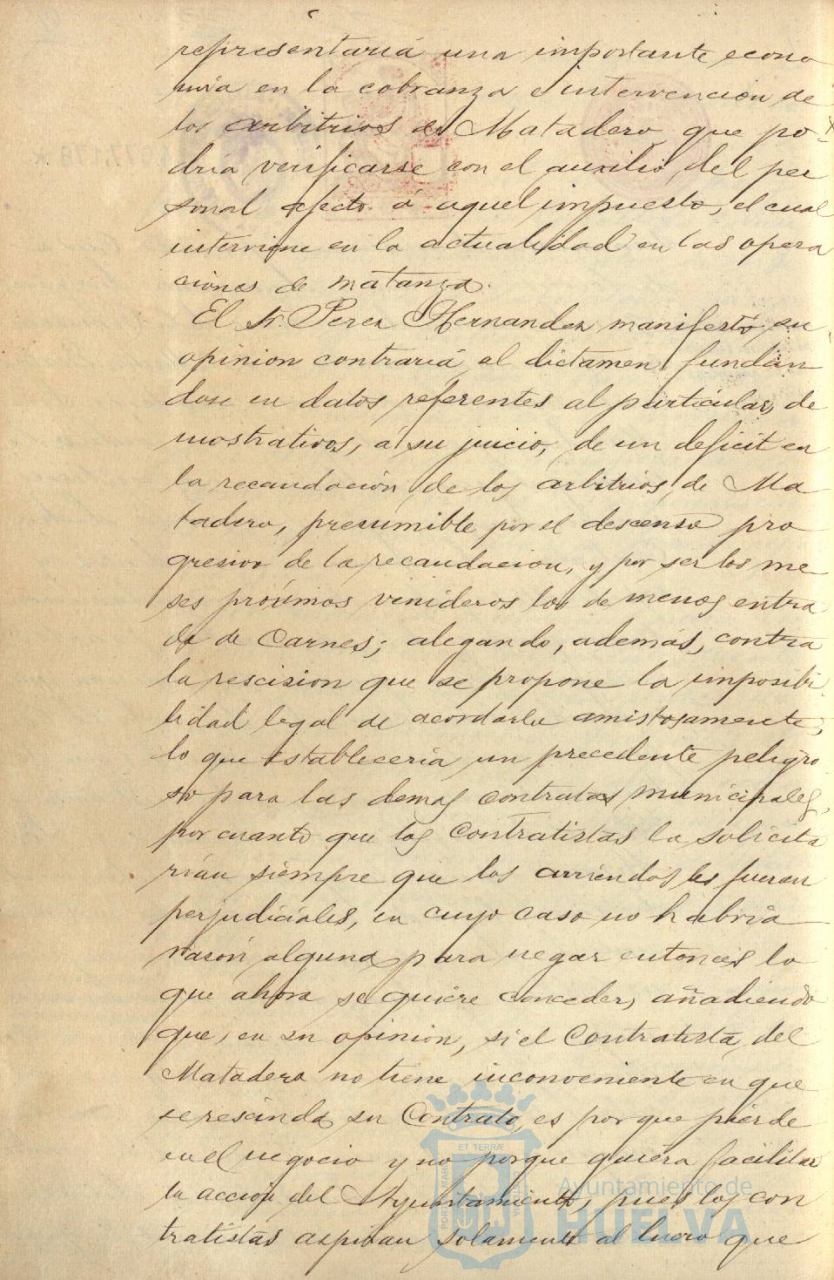 representaria una importante econo
mia en la cobranza e intervencion de
los arbitrios de Matadero, que po-
dria verificarse con el auxilio del per
sonal afecto á aquel impuesto, el cual
interviene en la actualidad en las opera
ciones de matanza.
El Sr. Perez Hernandez manifestó su
opinion contraria al dictamen fundan
dose en datos referentes al particular, de
mostrativos, á su juicio, de un deficit en
la recaudación de los arbitrios de Ma
tadero, presumible por el descenso pro
gresivo de la recaudacion, y por ser los me
ses próximos venideros los de menos entra
da de Carnes; alegando, además, contra
la rescision que se propone la imposibi
lidad legal de acordarla amistosamente,
lo que estableceria un precedente peligro
so para las demas contratas municipales,
por cuanto que los Contratistas la solicita
rían siempre que los arriendos les fueran
perjudiciales, en cuyo caso no habria
razón alguna para negar entonces lo
que ahora se quiere conceder, añadiendo
que, en su opinion, si el Contratista del
Matadero no tiene inconveniente en que
se rescinda su Contrato, es por que pierde
en el negocio y no porque quiera facilitar
la acción del Ayuntamiento, pues los con
tratistas aspiran solamente al lucro que
Ayuntamiento de
HUELVA